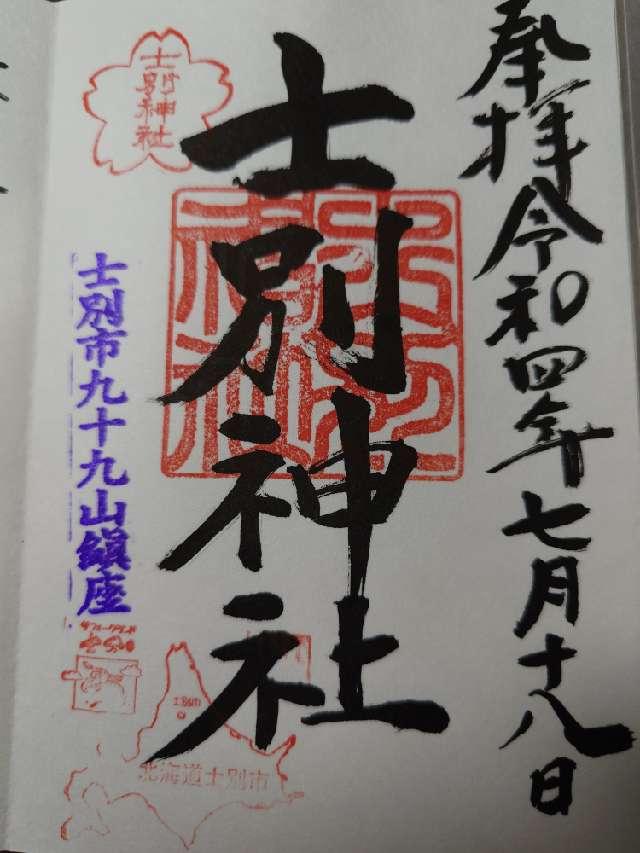 奉拝令和四年七月十八日
士別神社
士別神社
士別市九十九山鎮座
北海道士別市